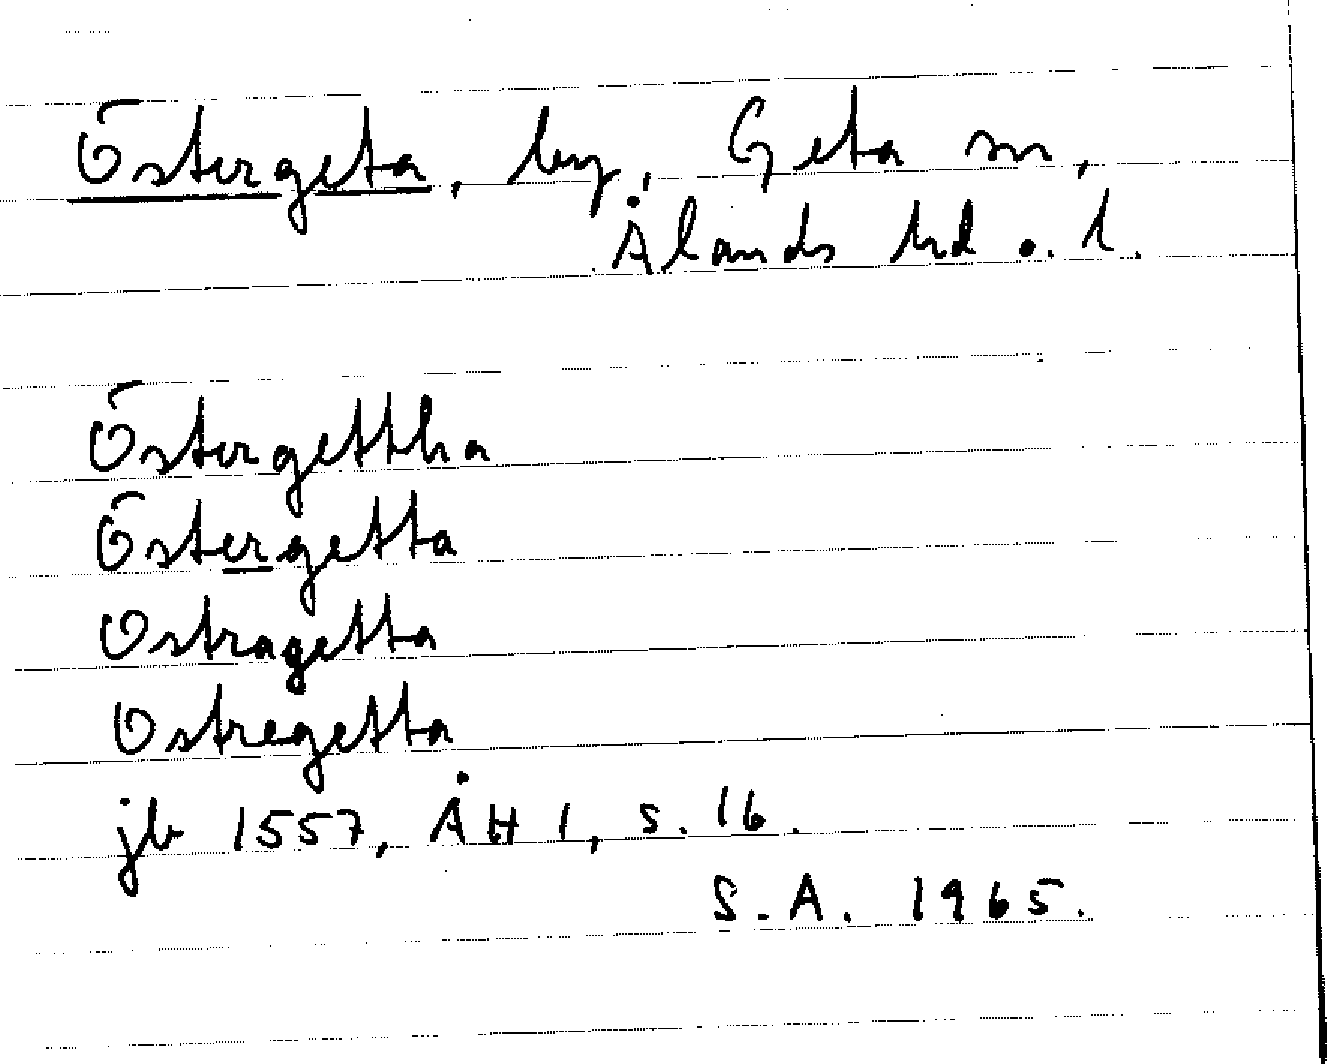 Östergeta, by, Geta sn,
Ålands hd o. l.
Östergettha
Östergetta
Ostragetta
Ostregetta
jb 1557, ÅH 1, s. 16.
S.A. 1965.